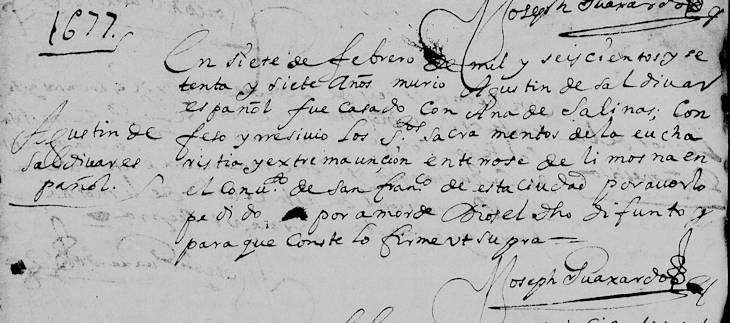 Joseph Guaxardo
1677.
En siete de febrero de mil y seiscientos y se
tenta y siete Años murio Agustin de saldivar
español fue casado con Ana de Salinas; Con
feso y rresivio los S.tos sacramentos de la eucha
ristia y extremaunçion enterose de limosna en
el Conv.to de san fran.co de esta ciudad por averlo
pedido por amor de Dios el dho difunto y
para que conste lo firme ut supra
Agustin de
saldivar es
pañol.
Joseph Guaxardo